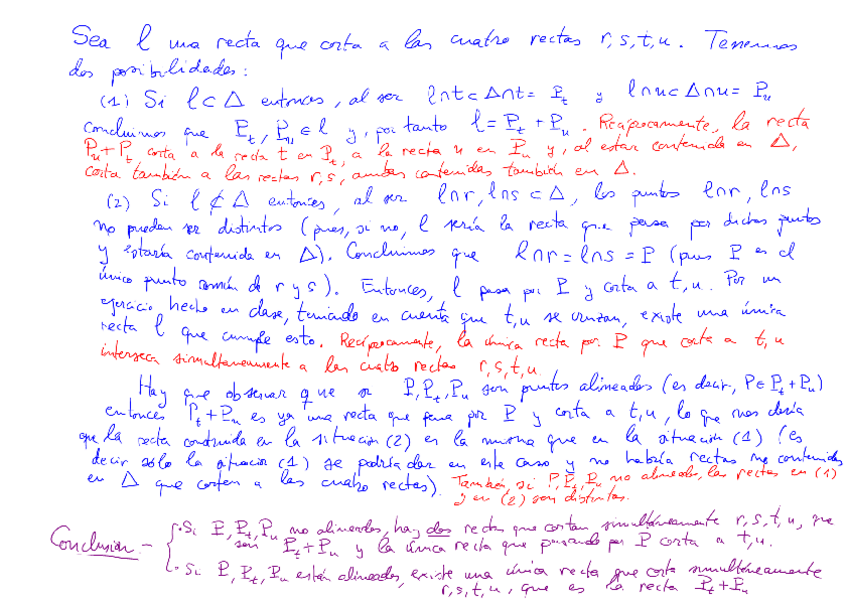 Sea l una recta que corta a las cuatro rectas r, s, t, u. Tenemos
dos posibilidades:
(1) Si l⊂Δ entonces, al ser l∩t⊂Δ∩t= P_t y l∩u⊂Δ∩u= P_u
concluimos que P_t, P_u ∈ l y, por tanto l = P_t + P_u. Recíprocamente, la recta
P_u+P_t corta a la recta t en P_t, a la recta u en P_u y, al estar contenida en Δ,
corta también a las rectas r, s, ambas contenidas también en Δ.
(2) Si l ⊄ Δ entonces, al ser l∩r, l∩s ⊂ Δ, los puntos l∩r, l∩s
no pueden ser distintos (pues, si no, l sería la recta que pasa por dichos puntos
y estaría contenida en Δ). Concluimos que l∩r = l∩s = P (pues P es el
único punto común de r y s). Entonces, l pasa por P y corta a t, u. Por un
ejercicio hecho en clase, teniendo en cuenta que t, u se cruzan, existe una única
recta l que cumple esto. Recíprocamente, la única recta por P que corta a t, u
interseca simultáneamente a las cuatro rectas r, s, t, u
Hay que observar que si P, P_t, P_u son puntos alineados (es decir, P∈P_t+P_u)
entonces P_t+P_u es ya una recta que pasa por P y corta a t, u, lo que nos daría
que la recta construida en la situación (2) es la misma que en la situación (1) (es
decir sólo la situación (1) se podría dar en este caso y no habría rectas no contenidas
en Δ que corten a las cuatro rectas). También, si P, P_t, P_u no alineados, las rectas en (1)
y en (2) son distintas.
Conclusión.- · Si P, P_t, P_u no alineados, hay dos rectas que cortan simultáneamente r, s, t, u, que
son P_t+P_u y la única recta que pasando por P corta a t, u.
· Si P, P_t, P_u están alineados, existe una única recta que corta simultáneamente
r, s, t, u, que es la recta P_t+P_u